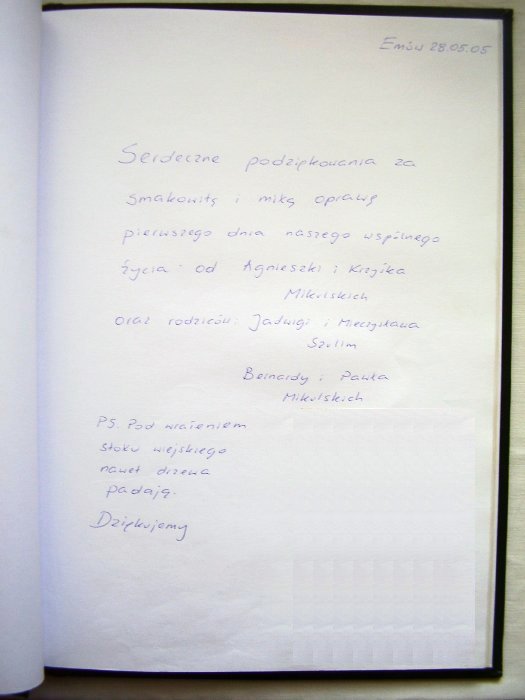 Emów 28.05.05
Serdeczne podziękowania za
smakowitą i miłą oprawę
pierwszego dnia naszego wspólnego
życia od Agnieszki i Krzyśka
Mikulskich
oraz rodziców: Jadwigi i Mieczysława
Szulim
Bernardy i Pawła
Mikulskich
PS. Pod wrażeniem
stołu wiejskiego
nawet drzewa
padają.
Dziękujemy